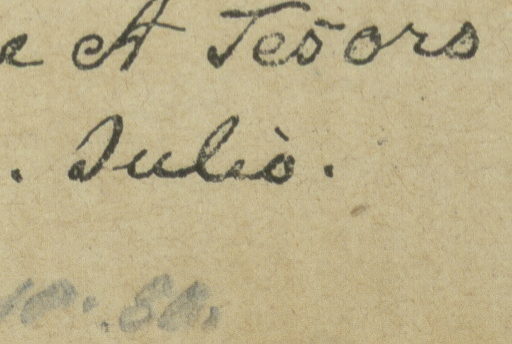 e A Tesoro
. Julio.
10. 80.